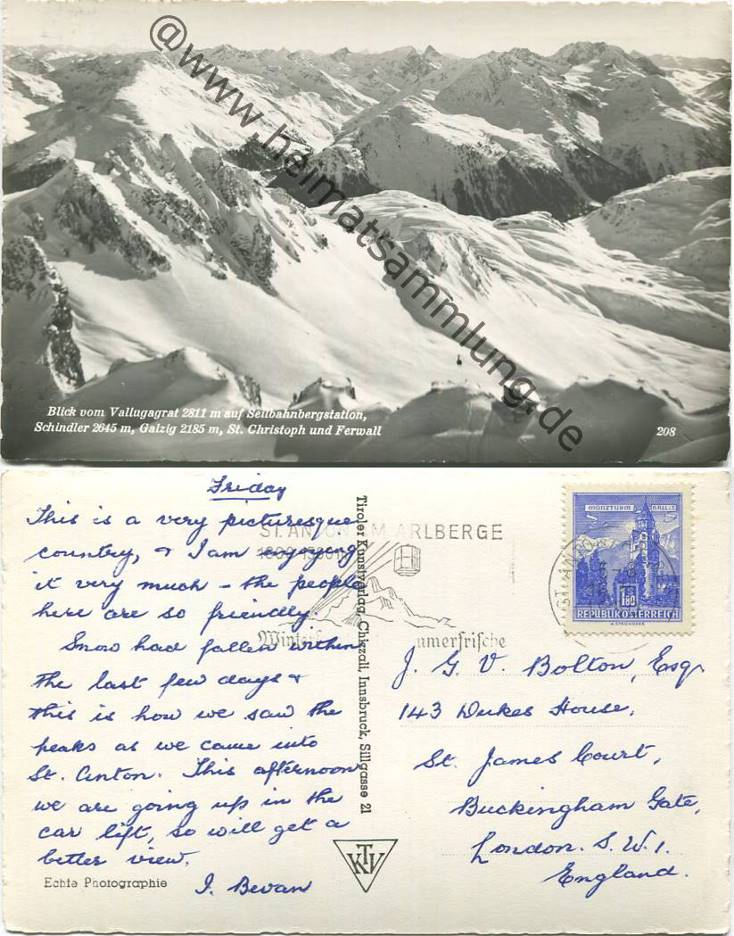 @www.heimatsammlung.de
Blick vom Vallugagrat 2811 m auf Seilbahnbergstation,
Schindler 2645 m, Galzig 2185 m, St. Christoph und Ferwall
208
Friday
This is a very picturesque
country, & I am enjoying
it very much – the people
here are so friendly.
Snow had fallen within
the last few days &
this is how we saw the
peaks as we came into
St. Anton. This afternoon
we are going up in the
car lift, so will get a
better view.
I. Bevan
Echte Photographie
Tiroler Kunstverlag Chizzali, Innsbruck, Sillgasse 21
KTV
ST. ANTON AM ARLBERG
MÜNZTURM HALL i. T.
1.80
REPUBLIK ÖSTERREICH
J. G. V. Bolton, Esq.
143 Dukes House,
St. James Court,
Buckingham Gate,
London. S.W.1.
England.